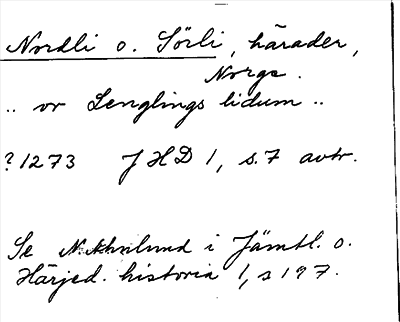 Nordli o. Sörli, härader,
Norge.
.. or Lenglings lidum ..
? 1273 JHD 1, s. 7 avtr.
Se N. Ahnlund i Jämtl. o.
Härjed. historia 1, s 197.